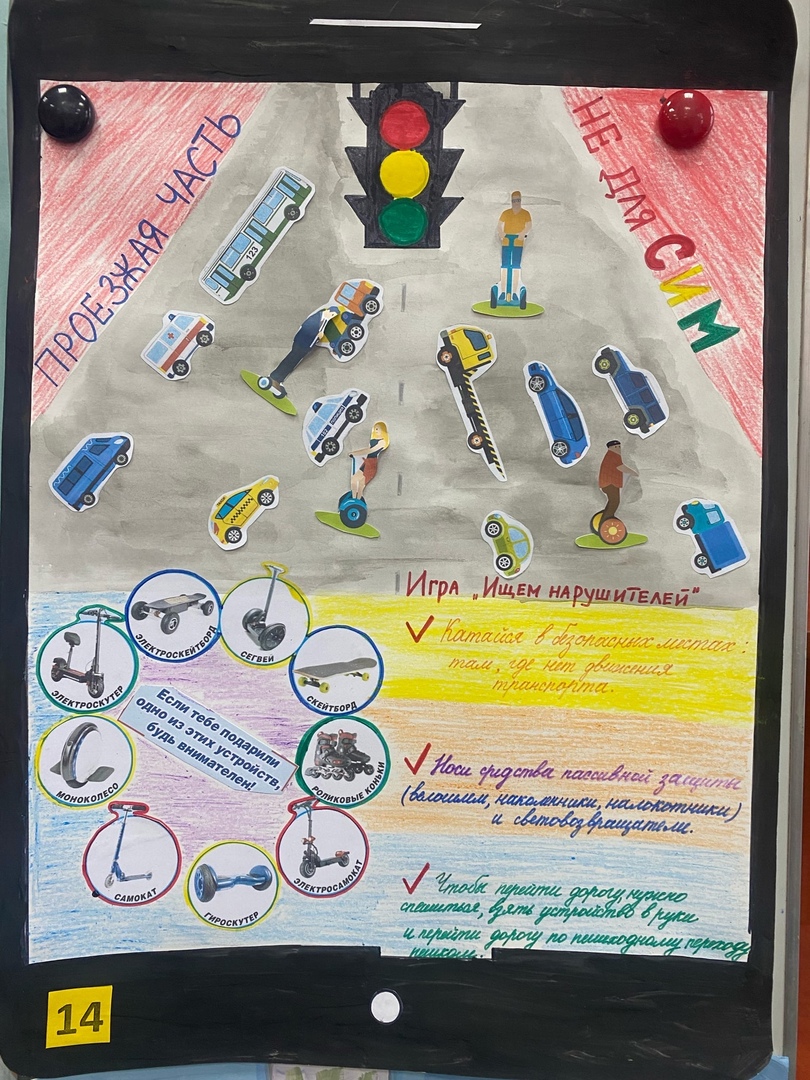 ПРОЕЗЖАЯ ЧАСТЬ
НЕ ДЛЯ СИМ
123
Игра „Ищем нарушителей"
Катайся в безопасных местах:
там, где нет движения
транспорта.
ЭЛЕКТРОСКЕЙТБОРД
СЕГВЕЙ
ЭЛЕКТРОСКУТЕР
СКЕЙТБОРД
Если тебе подарили
одно из этих устройств,
будь внимателен!
МОНОКОЛЕСО
РОЛИКОВЫЕ КОНЬКИ
САМОКАТ
ГИРОСКУТЕР
ЭЛЕКТРОСАМОКАТ
Носи средства пассивной защиты
(велошлем, наколенники, налокотники)
и световозвращатели.
Чтобы перейти дорогу нужно
спешиться, взять устройство в руки
и перейти дорогу по пешеходному переходу
пешком.
14